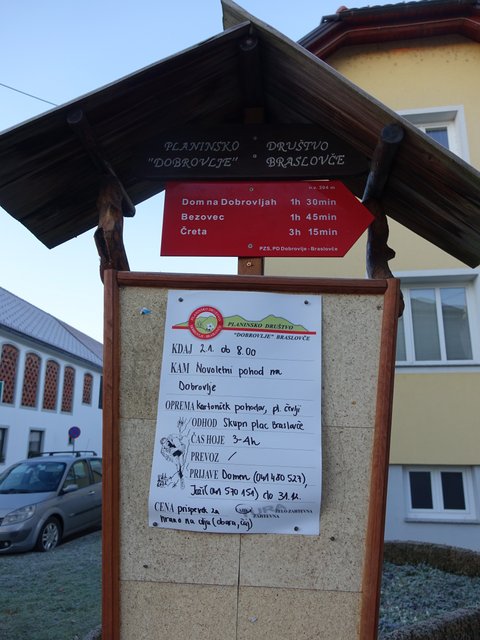 PLANINSKO DRUŠTVO
"DOBROVLJE" BRASLOVČE
n.v. 304 m
Dom na Dobrovljah 1h 30min
Bezovec 1h 45min
Čreta 3h 15min
PZS, PD Dobrovlje - Braslovče
PLANINSKO DRUŠTVO
"DOBROVLJE" BRASLOVČE
KDAJ 2.1. ob 8.00
KAM Novoletni pohod na
Dobrovlje
OPREMA kartonček pohodov, pl. čevlji
ODHOD Skupn plac Braslovče
ČAS HOJE 3-4h
PREVOZ /
PRIJAVE Domen (041 480 527),
Joži (041 570 151) do 31.12.
CENA prispevek za
hrano na cilju (obara, čaj)
TURA
ZAHTEVNA ZELO ZAHTEVNA